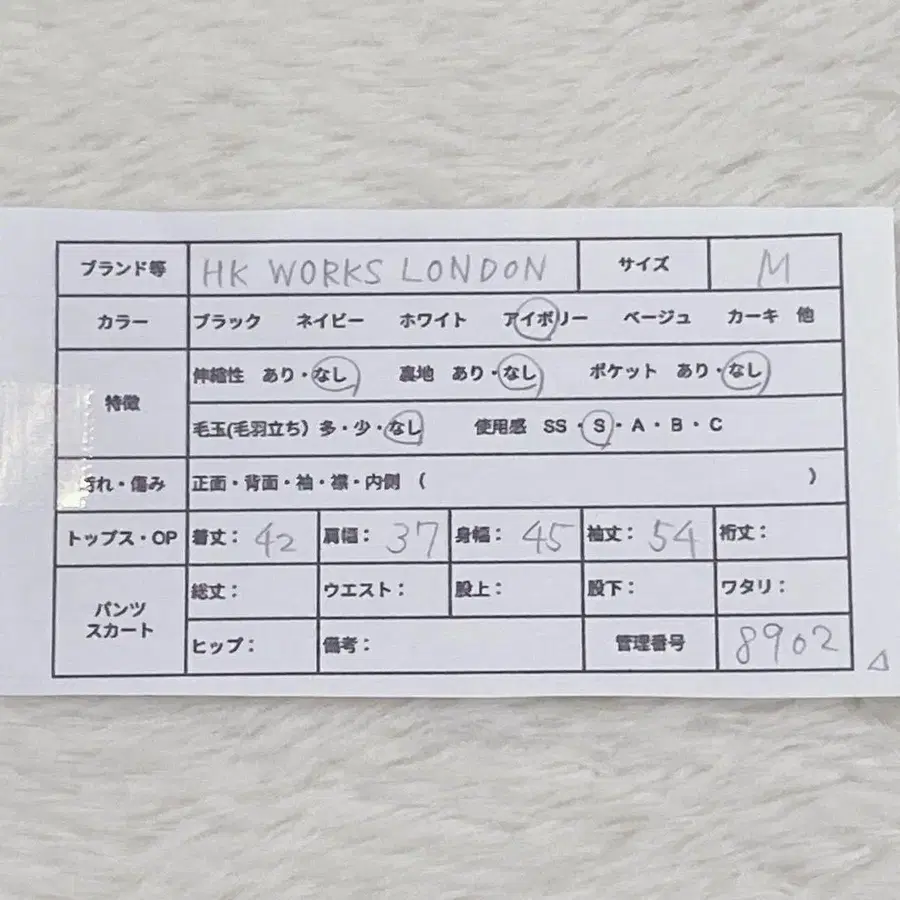 ブランド等 HK WORKS LONDON サイズ M
カラー ブラック ネイビー ホワイト アイボリー ベージュ カーキ 他
特徴
伸縮性 あり・なし 裏地 あり・なし ポケット あり・なし
毛玉(毛羽立ち) 多・少・なし 使用感 SS・S・A・B・C
汚れ・傷み 正面・背面・袖・襟・内側 ( )
トップス・OP 着丈: 42 肩幅: 37 身幅: 45 袖丈: 54 裄丈:
パンツ
スカート
総丈: ウエスト: 股上: 股下: ワタリ:
ヒップ: 備考: 管理番号 8902